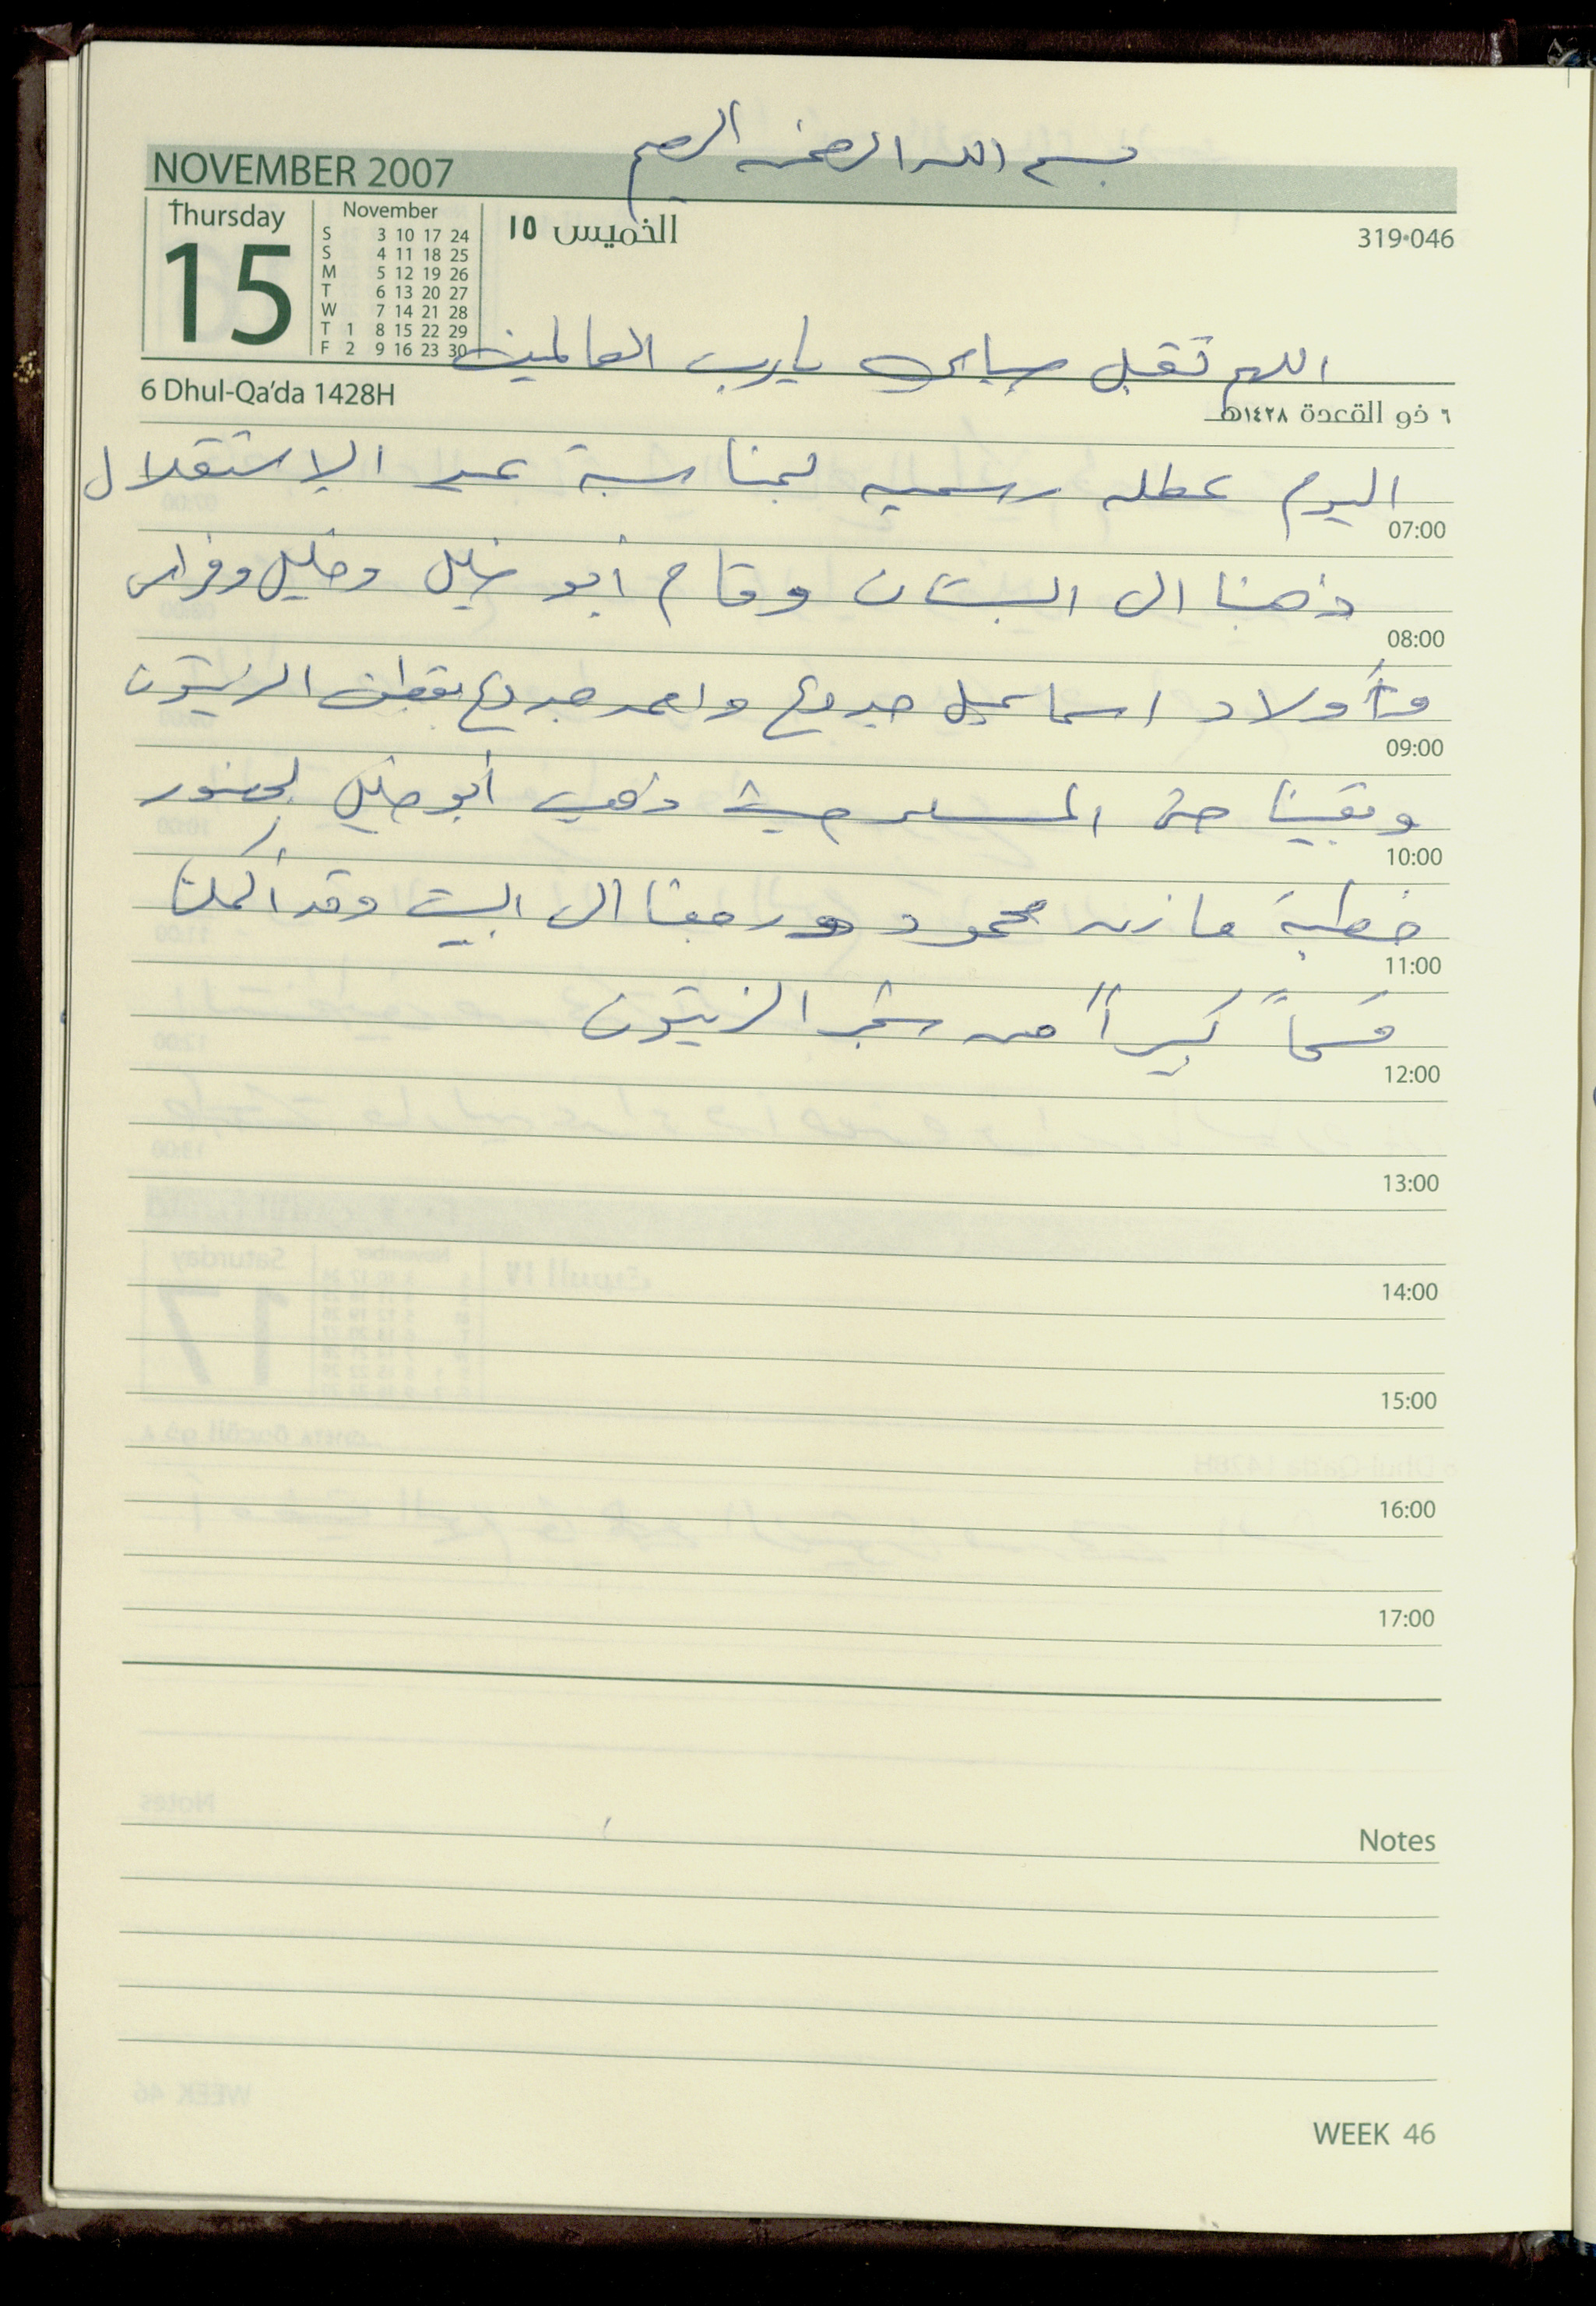 بسم الله الرحمن الرحيم
NOVEMBER 2007
Thursday
15
November
S 3 10 17 24
S 4 11 18 25
M 5 12 19 26
T 6 13 20 27
W 7 14 21 28
T 1 8 15 22 29
F 2 9 16 23 30
الخميس ١٥
319·046
اللهم تقبل صيامي يارب العالمين
6 Dhul-Qa'da 1428H
٦ ذو القعدة ١٤٢٨هـ
اليوم عطله رسميه بمناسبة عيد الاستقلال
07:00
ذهبنا الى البستان وقام أبو خليل وخليل وفراس
08:00
وأولاد اسماعيل واحمد بقطف الزيتون
09:00
وبقينا حتى المساء حيث ذهب أبو خليل لحضور
10:00
خطبة مازن محمود ورجعنا الى البيت وقد أكملنا
11:00
قسماً كبيراً من شجر الزيتون
12:00
13:00
14:00
15:00
16:00
17:00
Notes
WEEK 46